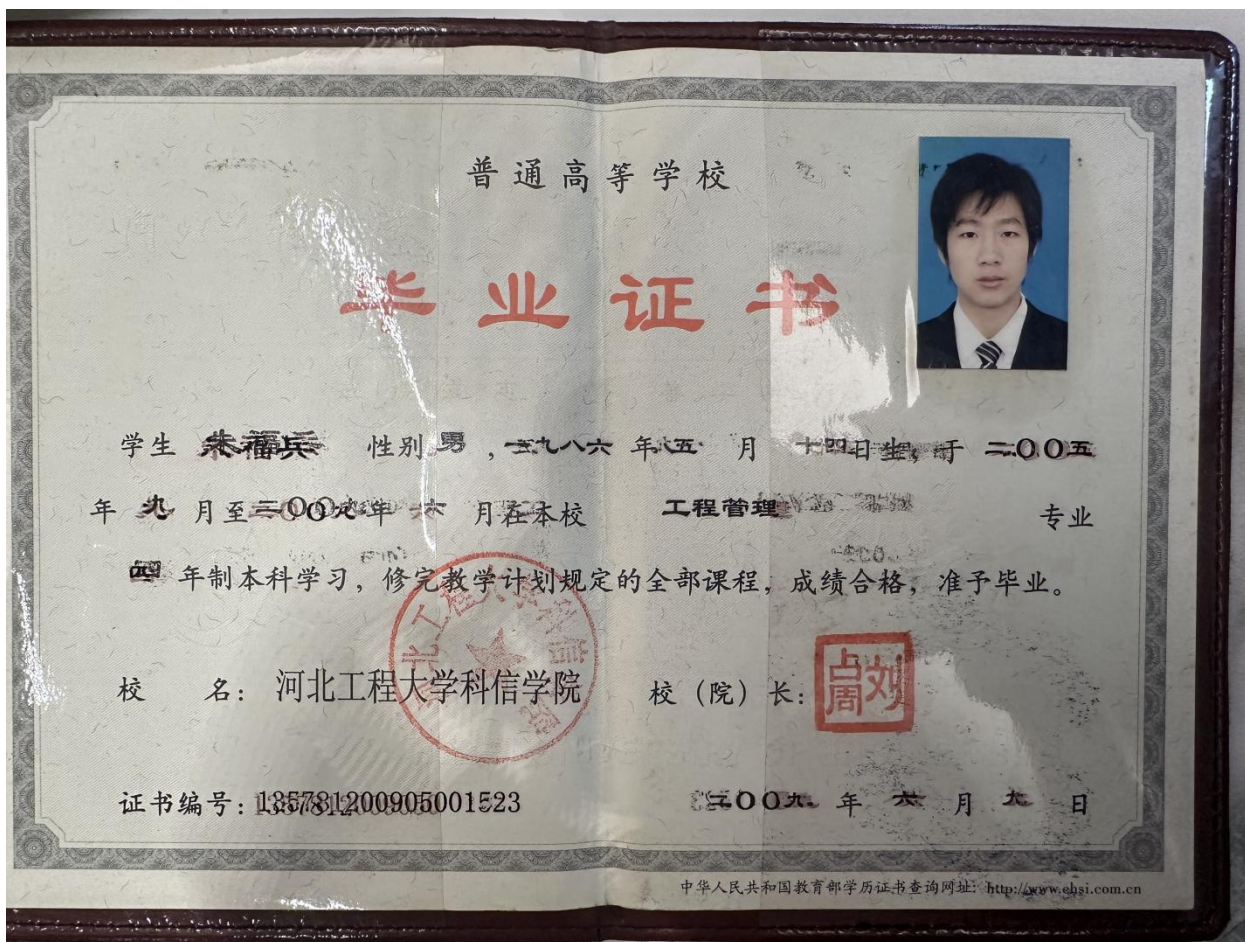 普通高等学校
毕业证书
学生 朱福兵 性别 男 ，一九八六 年 五 月 十四日生，于 二〇〇五
年 九 月至二〇〇九年 六 月在本校 工程管理 专业
四 年制本科学习，修完教学计划规定的全部课程，成绩合格，准予毕业。
河北工程大学科信学院
校 名：河北工程大学科信学院 校（院）长：刘占周
证书编号：135781200905001523 二〇〇九 年 六 月 日
中华人民共和国教育部学历证书查询网址：http://www.chsi.com.cn